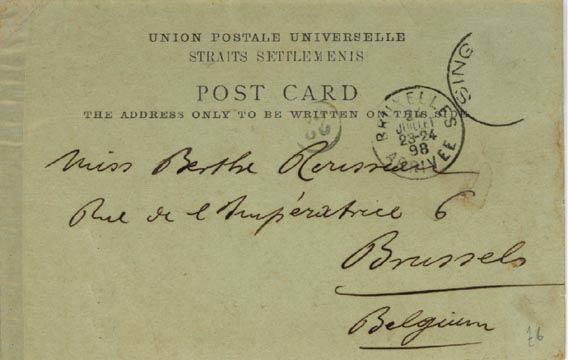 UNION POSTALE UNIVERSELLE
STRAITS SETTLEMENTS
POST CARD
THE ADDRESS ONLY TO BE WRITTEN ON THIS SIDE
SING
BRUXELLES
JUILLET
23-24
98
ARRIVEE
Miss Berthe Rousseau
Rue de l'Impératrice 6
Brussels
Belgium
76